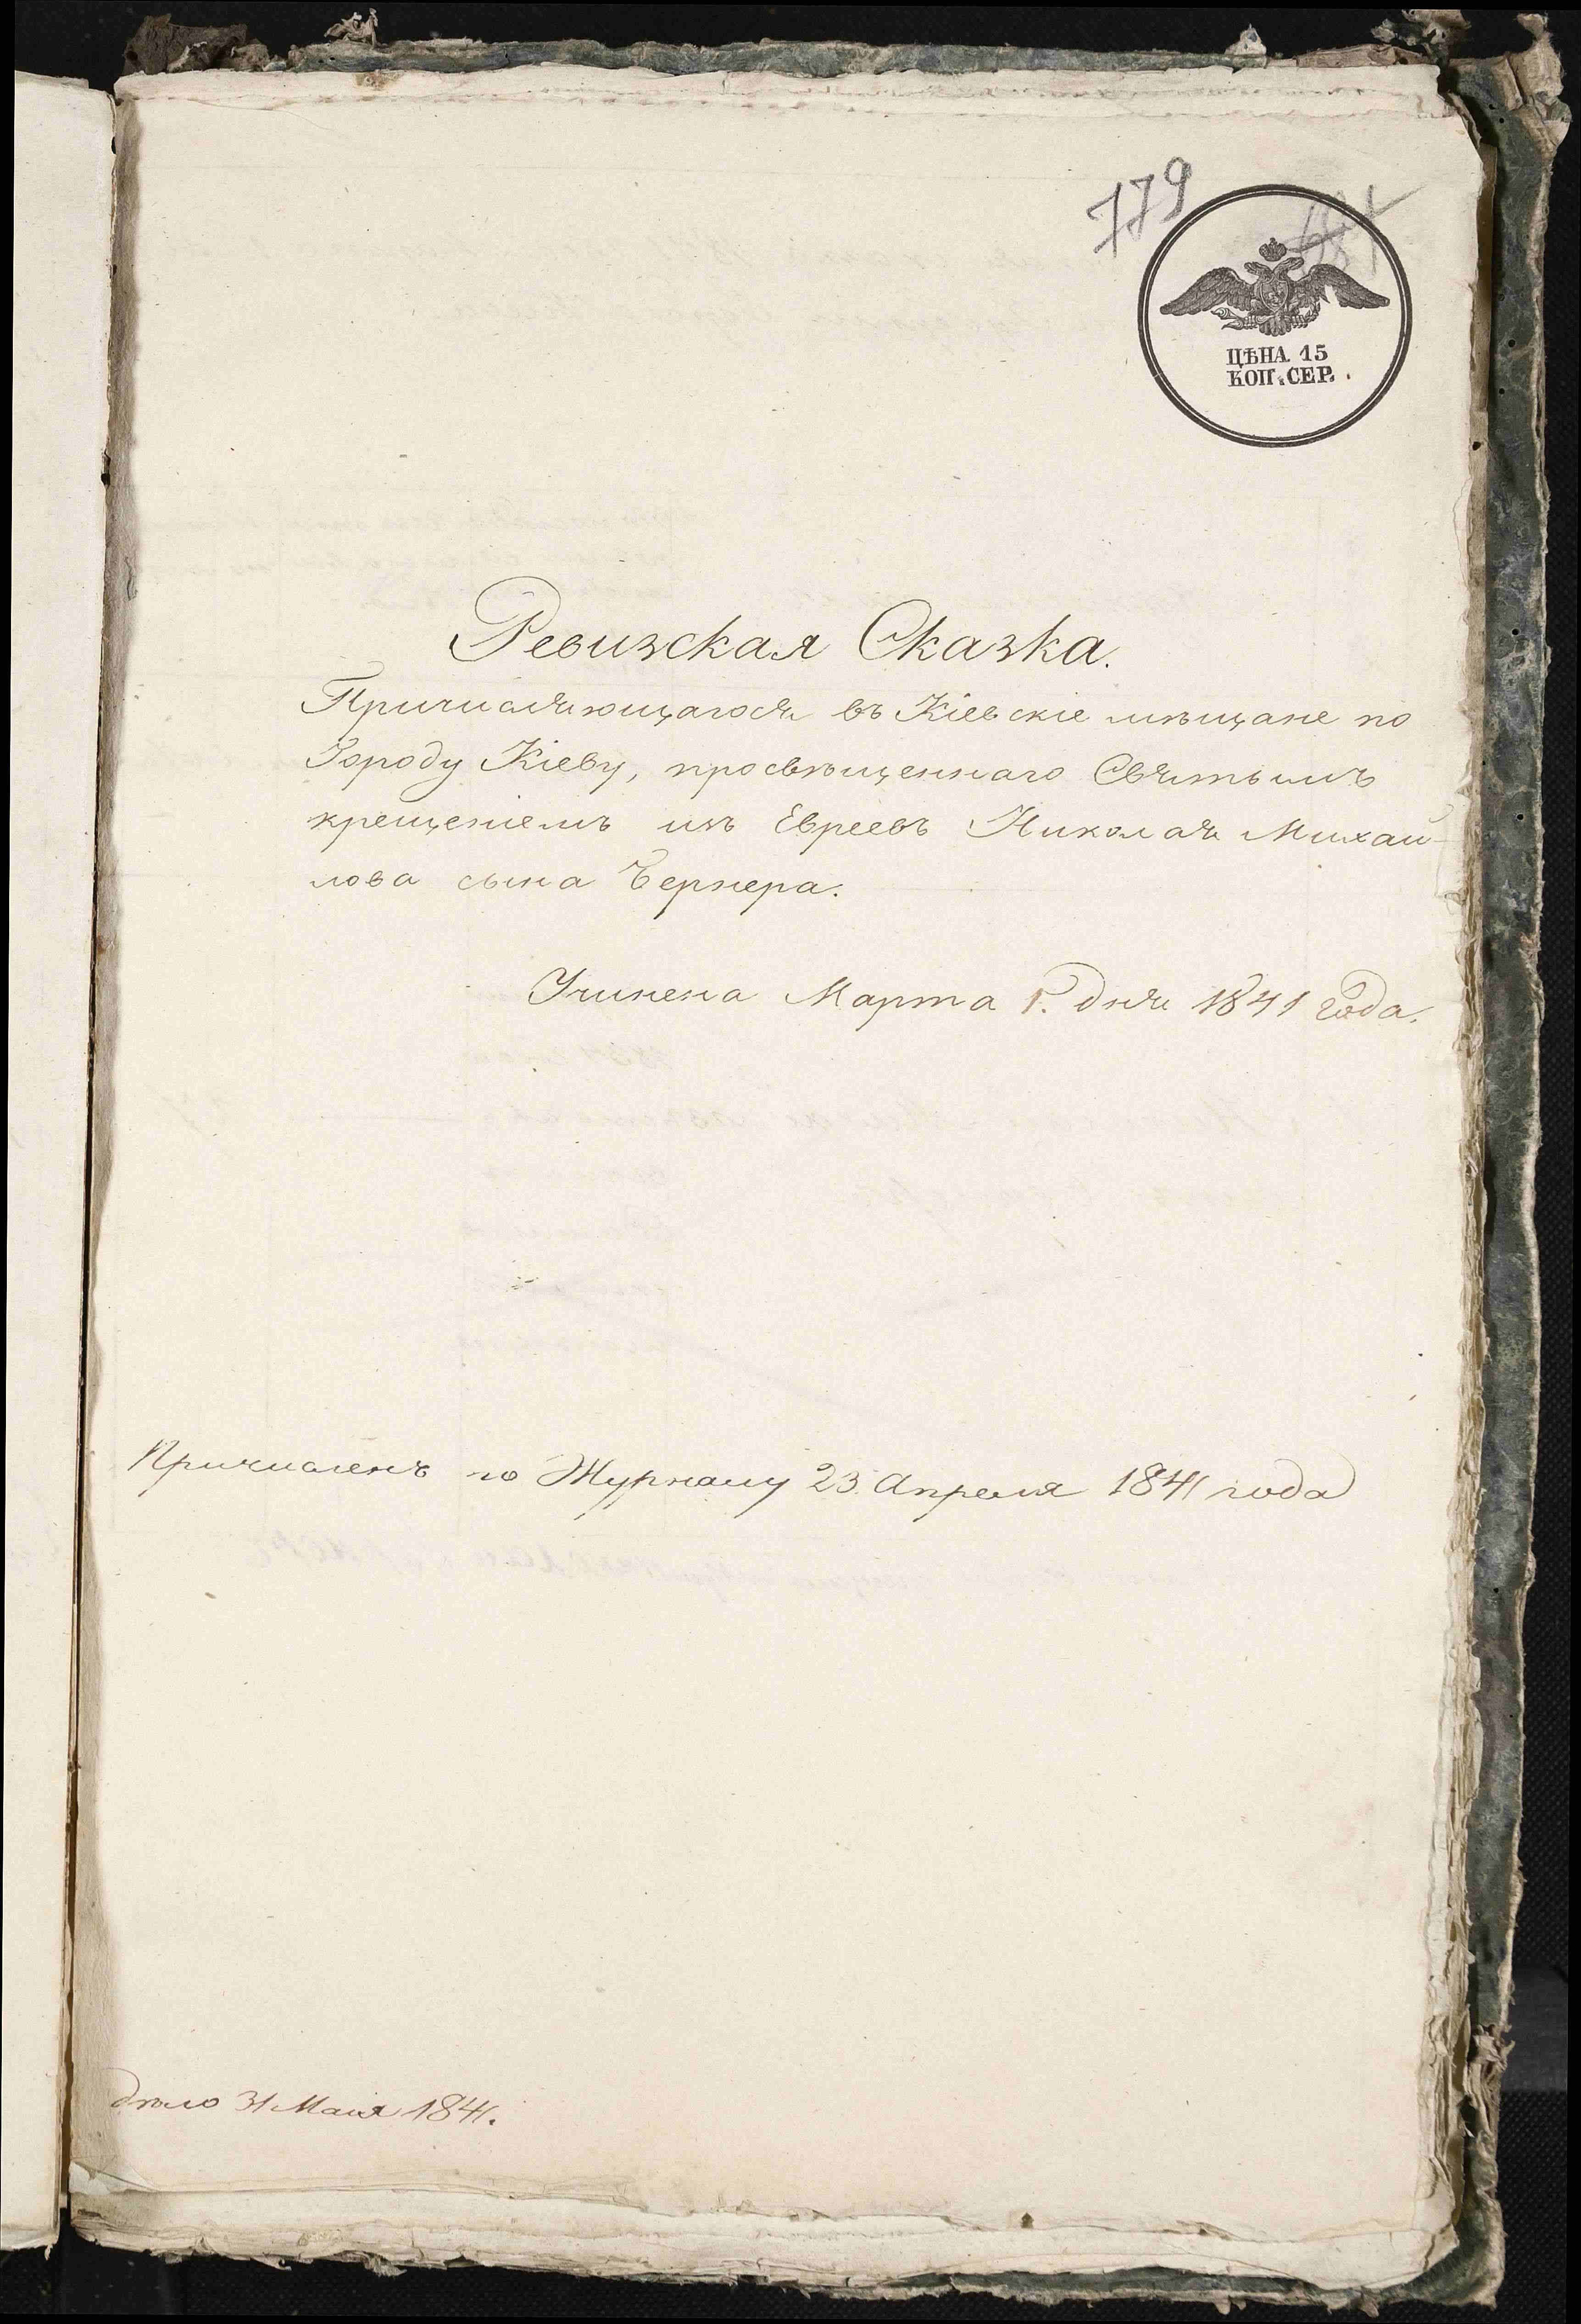 779
ЦѢНА 15
КОП. СЕР.
Ревизская Сказка.
Причисляющагося въ Кіевскіе мѣщане по
Городу Кіеву, просвѣщеннаго Святымъ
крещеніемъ изъ Евреевъ Николая Михай-
лова сына Бернера.
Учинена Марта 1. дня 1841 года.
Причисленъ по Журналу 23. Апреля 1841 года
дѣло 31 Маія 1841.